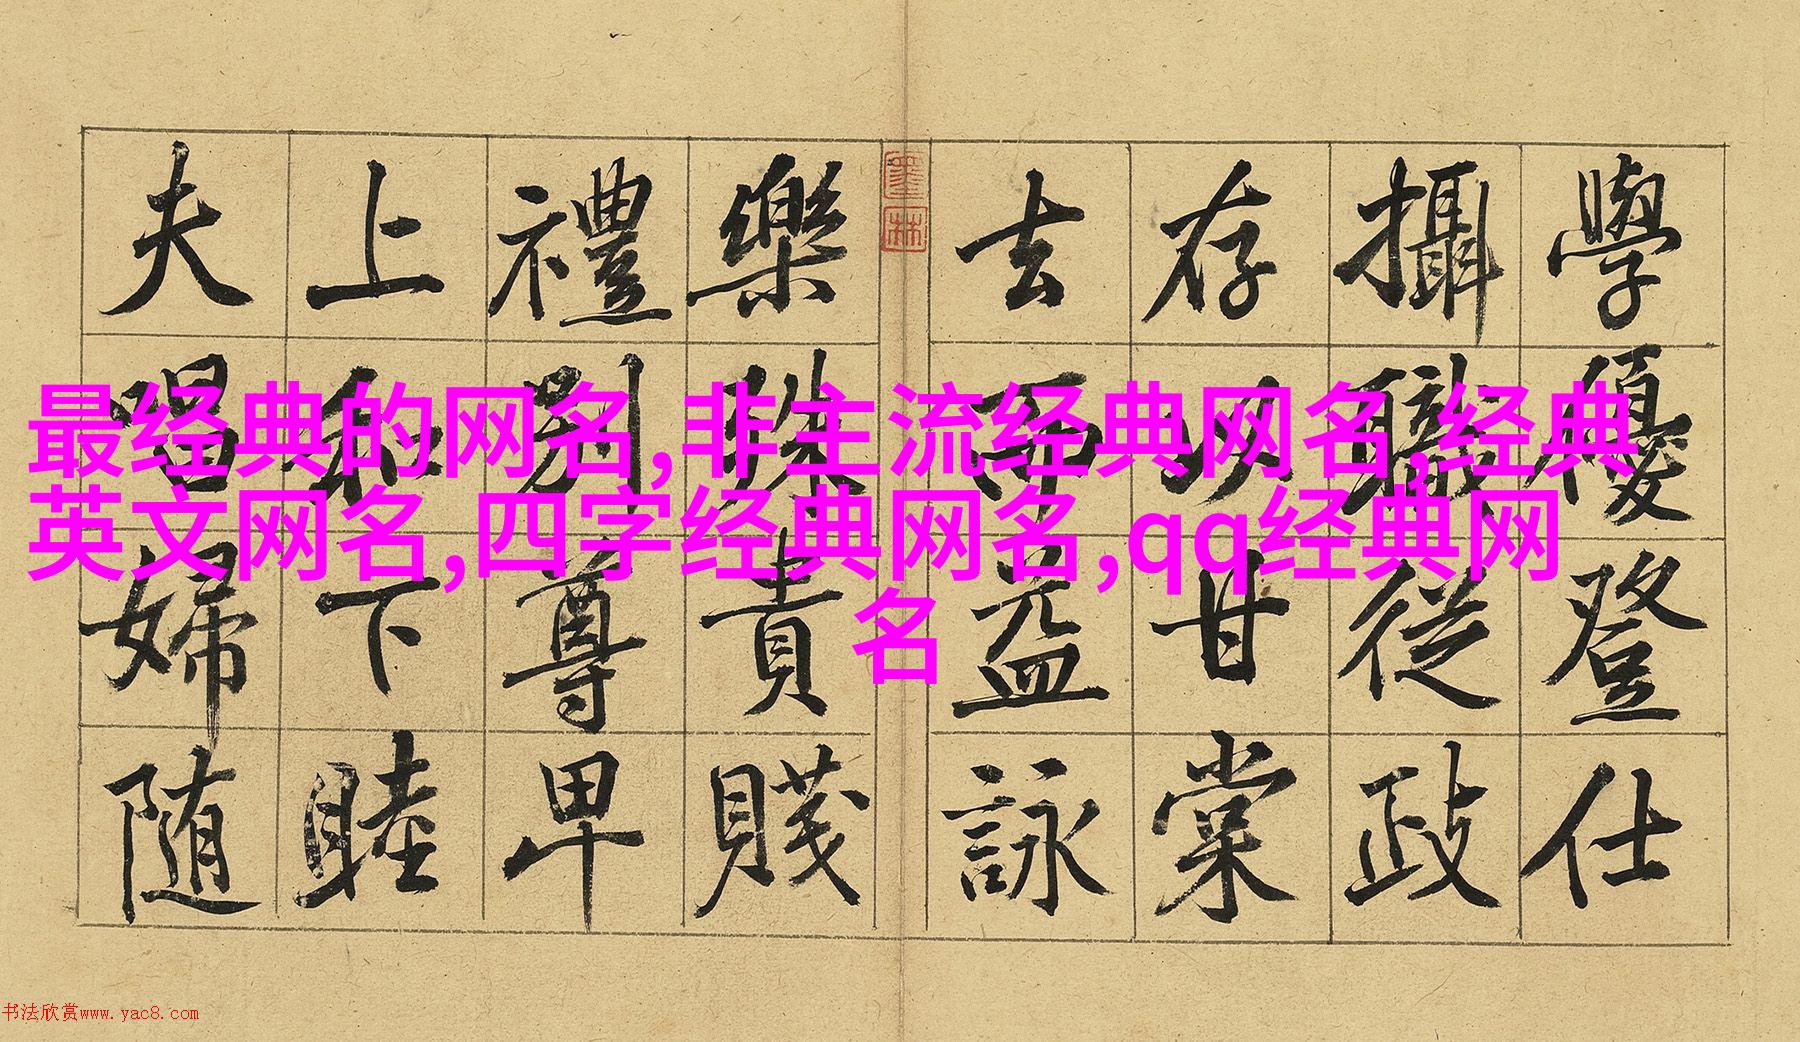 學優登仕
攝職從政
存以甘棠
去而益詠
樂殊貴賤
禮別尊卑
上和下睦
夫唱婦随
墨林
最经典的网名,非主流经典网名,经典
英文网名,四字经典网名,qq经典网
名
书法欣赏www.yac8.com